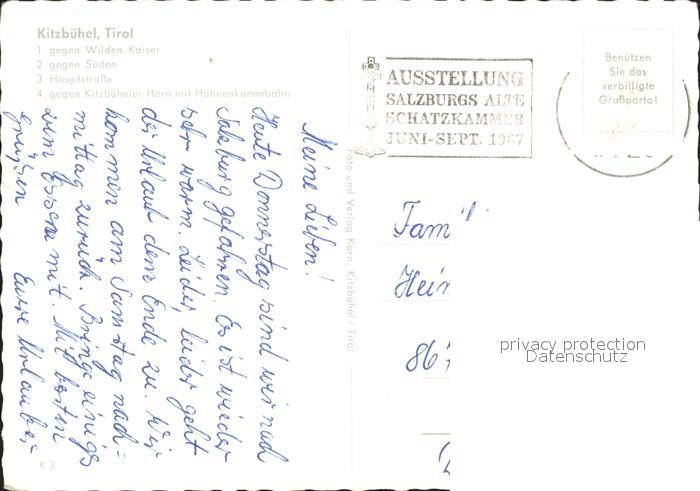 Kitzbühel, Tirol
1 gegen Wilden Kaiser
2 gegen Süden
3 Hauptstraße
4 gegen Kitzbüheler Horn mit Hahnenkammbahn
Meine Lieben!
Heute Donnerstag sind wir nach
Salzburg gefahren. Es ist wieder
sehr warm. Leider, leider geht
der Urlaub dem Ende zu. Wir
kommen am Samstag nach-
mittag zurück. Bringe einiges
zum Essen mit. Mit besten
Grüßen Eure Urlauber
K 3
Foto und Verlag Korn, Kitzbühel / Tirol
AUSSTELLUNG
SALZBURGS ALTE
SCHATZKAMMER
JUNI-SEPT. 1967
Benützen
Sie das
verbilligte
Grußporto!
Fam
Hein
86
privacy protection
Datenschutz